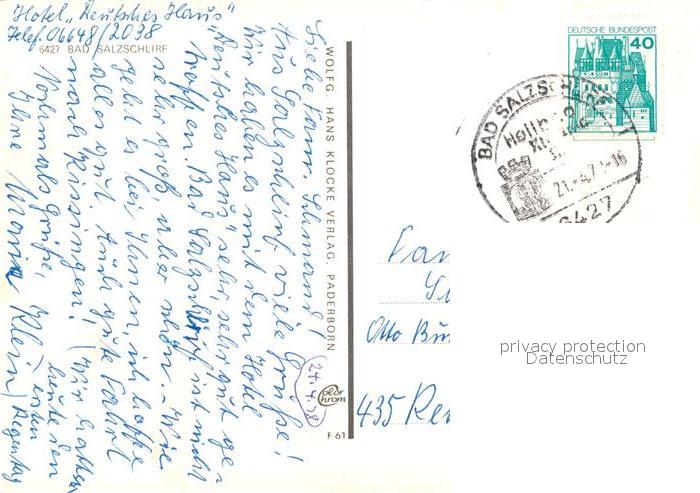 Hotel „Deutsches Haus"
Telef. 06648/2038
6427 BAD SALZSCHLIRF
Liebe Fam.
Aus Salzschlirf viele Grüße!
Wir haben es mit dem Hotel
„Deutsches Haus" sehr, sehr gut ge-
troffen. Bad Salzschlirf ist nicht
sehr groß, aber schön. – Wie
geht es bei Ihnen, ich hoffe
alles gut. Auch gute Fahrt
nach Kissingen!
Nochmals Grüße,
Ihre Maria Klein
(Wir hatten
heute den
ersten
Regentag
24.4.78
WOLFG. HANS KLOCKE VERLAG, PADERBORN
Color
Chrom
F 61
DEUTSCHE BUNDESPOST
40
BAD SALZSCHLIRF
6427
Fam
Otto
435 Re
privacy protection
Datenschutz